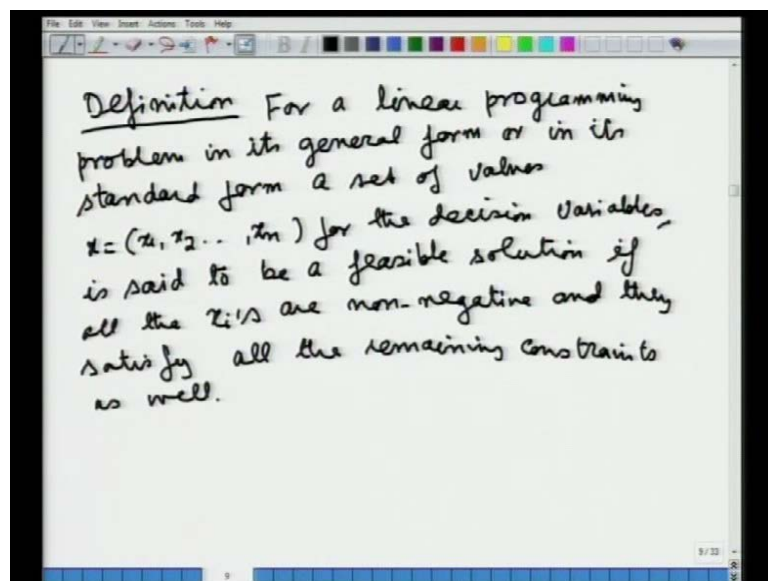 File Edit View Insert Actions Tools Help
B I
Definition For a linear programming
problem in its general form or in its
standard form a set of values
x = (x₁, x₂ .. , xₙ) for the decision variables,
is said to be a feasible solution if
all the xᵢ's are non-negative and they
satisfy all the remaining constraints
as well.
9/33
9